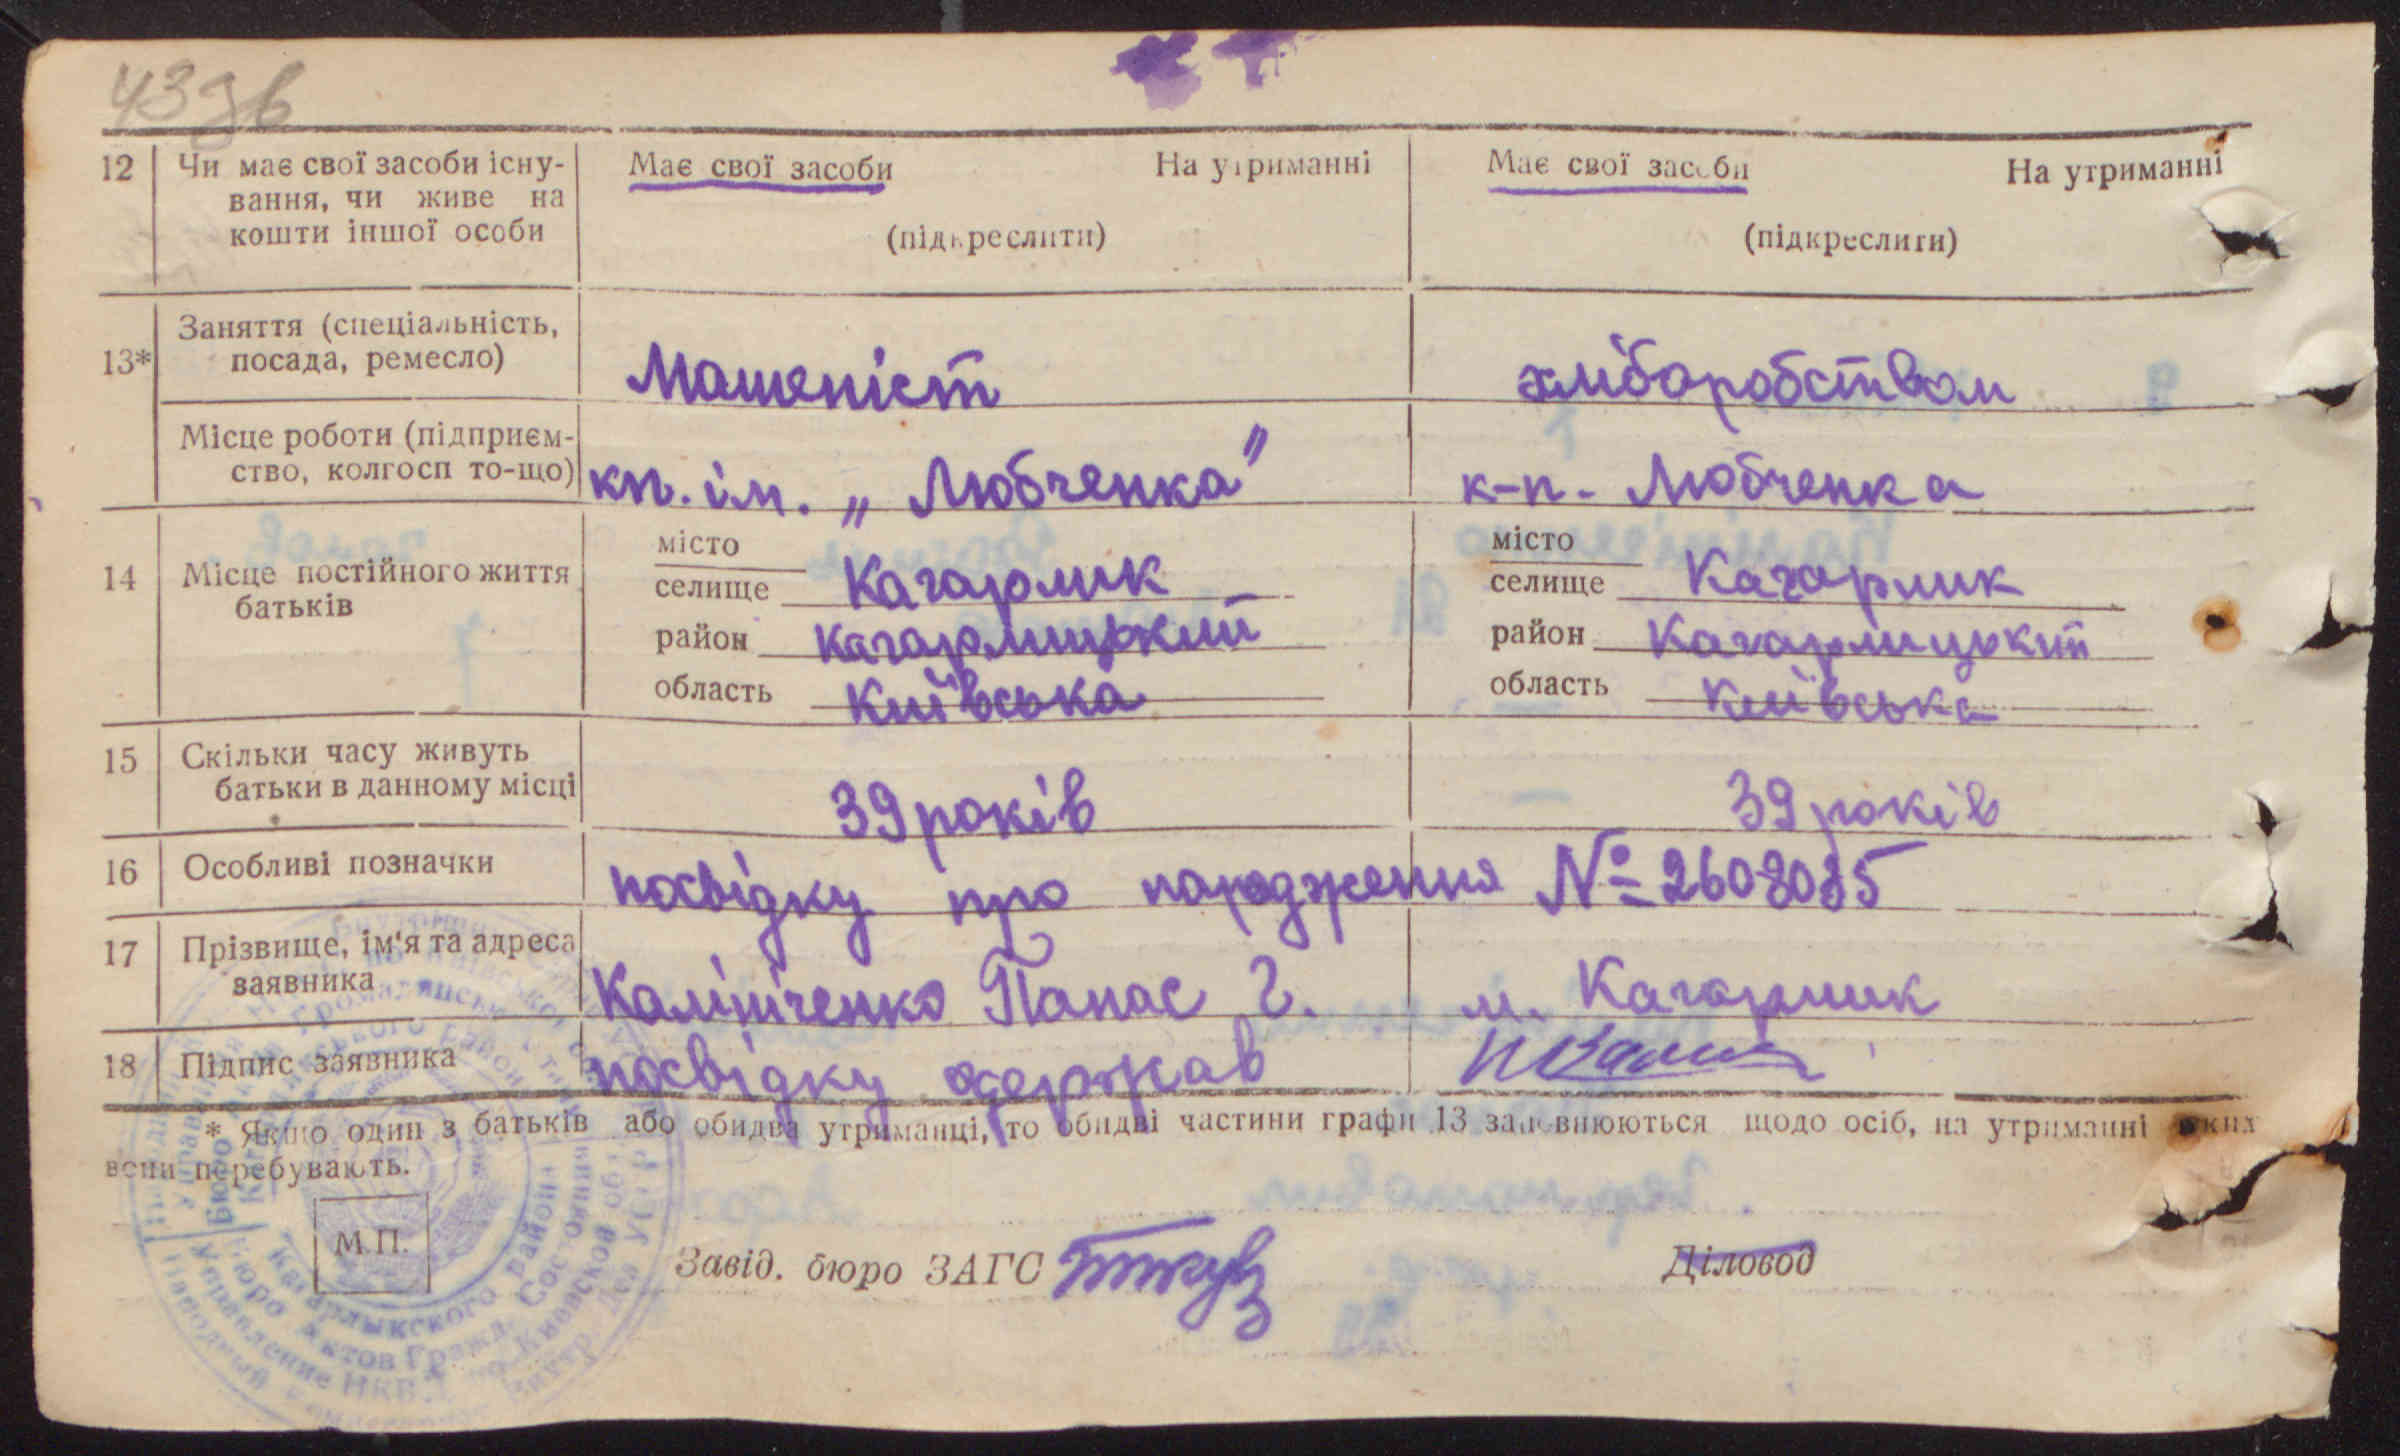 43зв
12 Чи має свої засоби існу- Має свої засоби На утриманні Має свої засоби На утриманні
вання, чи живе на
кошти іншої особи (підкреслити) (підкреслити)
13* Заняття (спеціальність,
посада, ремесло) Машеніст хліборобством
Місце роботи (підприєм-
ство, колгосп то-що) кп. ім. „Любченка" к-п. Любченка
14 Місце постійного життя
батьків
місто місто
селище Кагарлик селище Кагарлик
район Кагарлицький район Кагарлицький
область Київська область Київська
15 Скільки часу живуть
батьки в данному місці 39 років 39 років
16 Особливі позначки посвідку про народження № 2608035
17 Прізвище, ім'я та адреса
заявника Калініченко Панас Г. м. Кагарлик
18 Підпис заявника посвідку одержав
* Якщо один з батьків або обидва утриманці, то обидві частини графи 13 заповнюються щодо осіб, на утриманні яких
вони перебувають.
М.П.
Завід. бюро ЗАГС Діловод